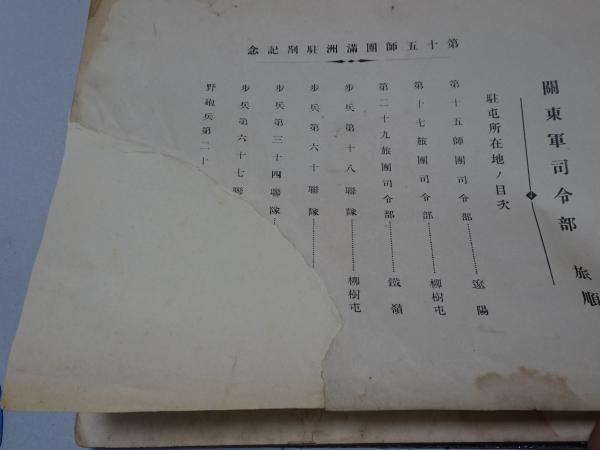 第十五師團滿洲駐剳記念
關東軍司令部 旅順
駐屯所在地ノ目次
第十五師團司令部………遼陽
第十七旅團司令部………柳樹屯
第二十九旅團司令部……鐵嶺
步兵第十八聯隊…………柳樹屯
步兵第六十聯隊…………
步兵第三十四聯隊………
步兵第六十七聯
野砲兵第二十